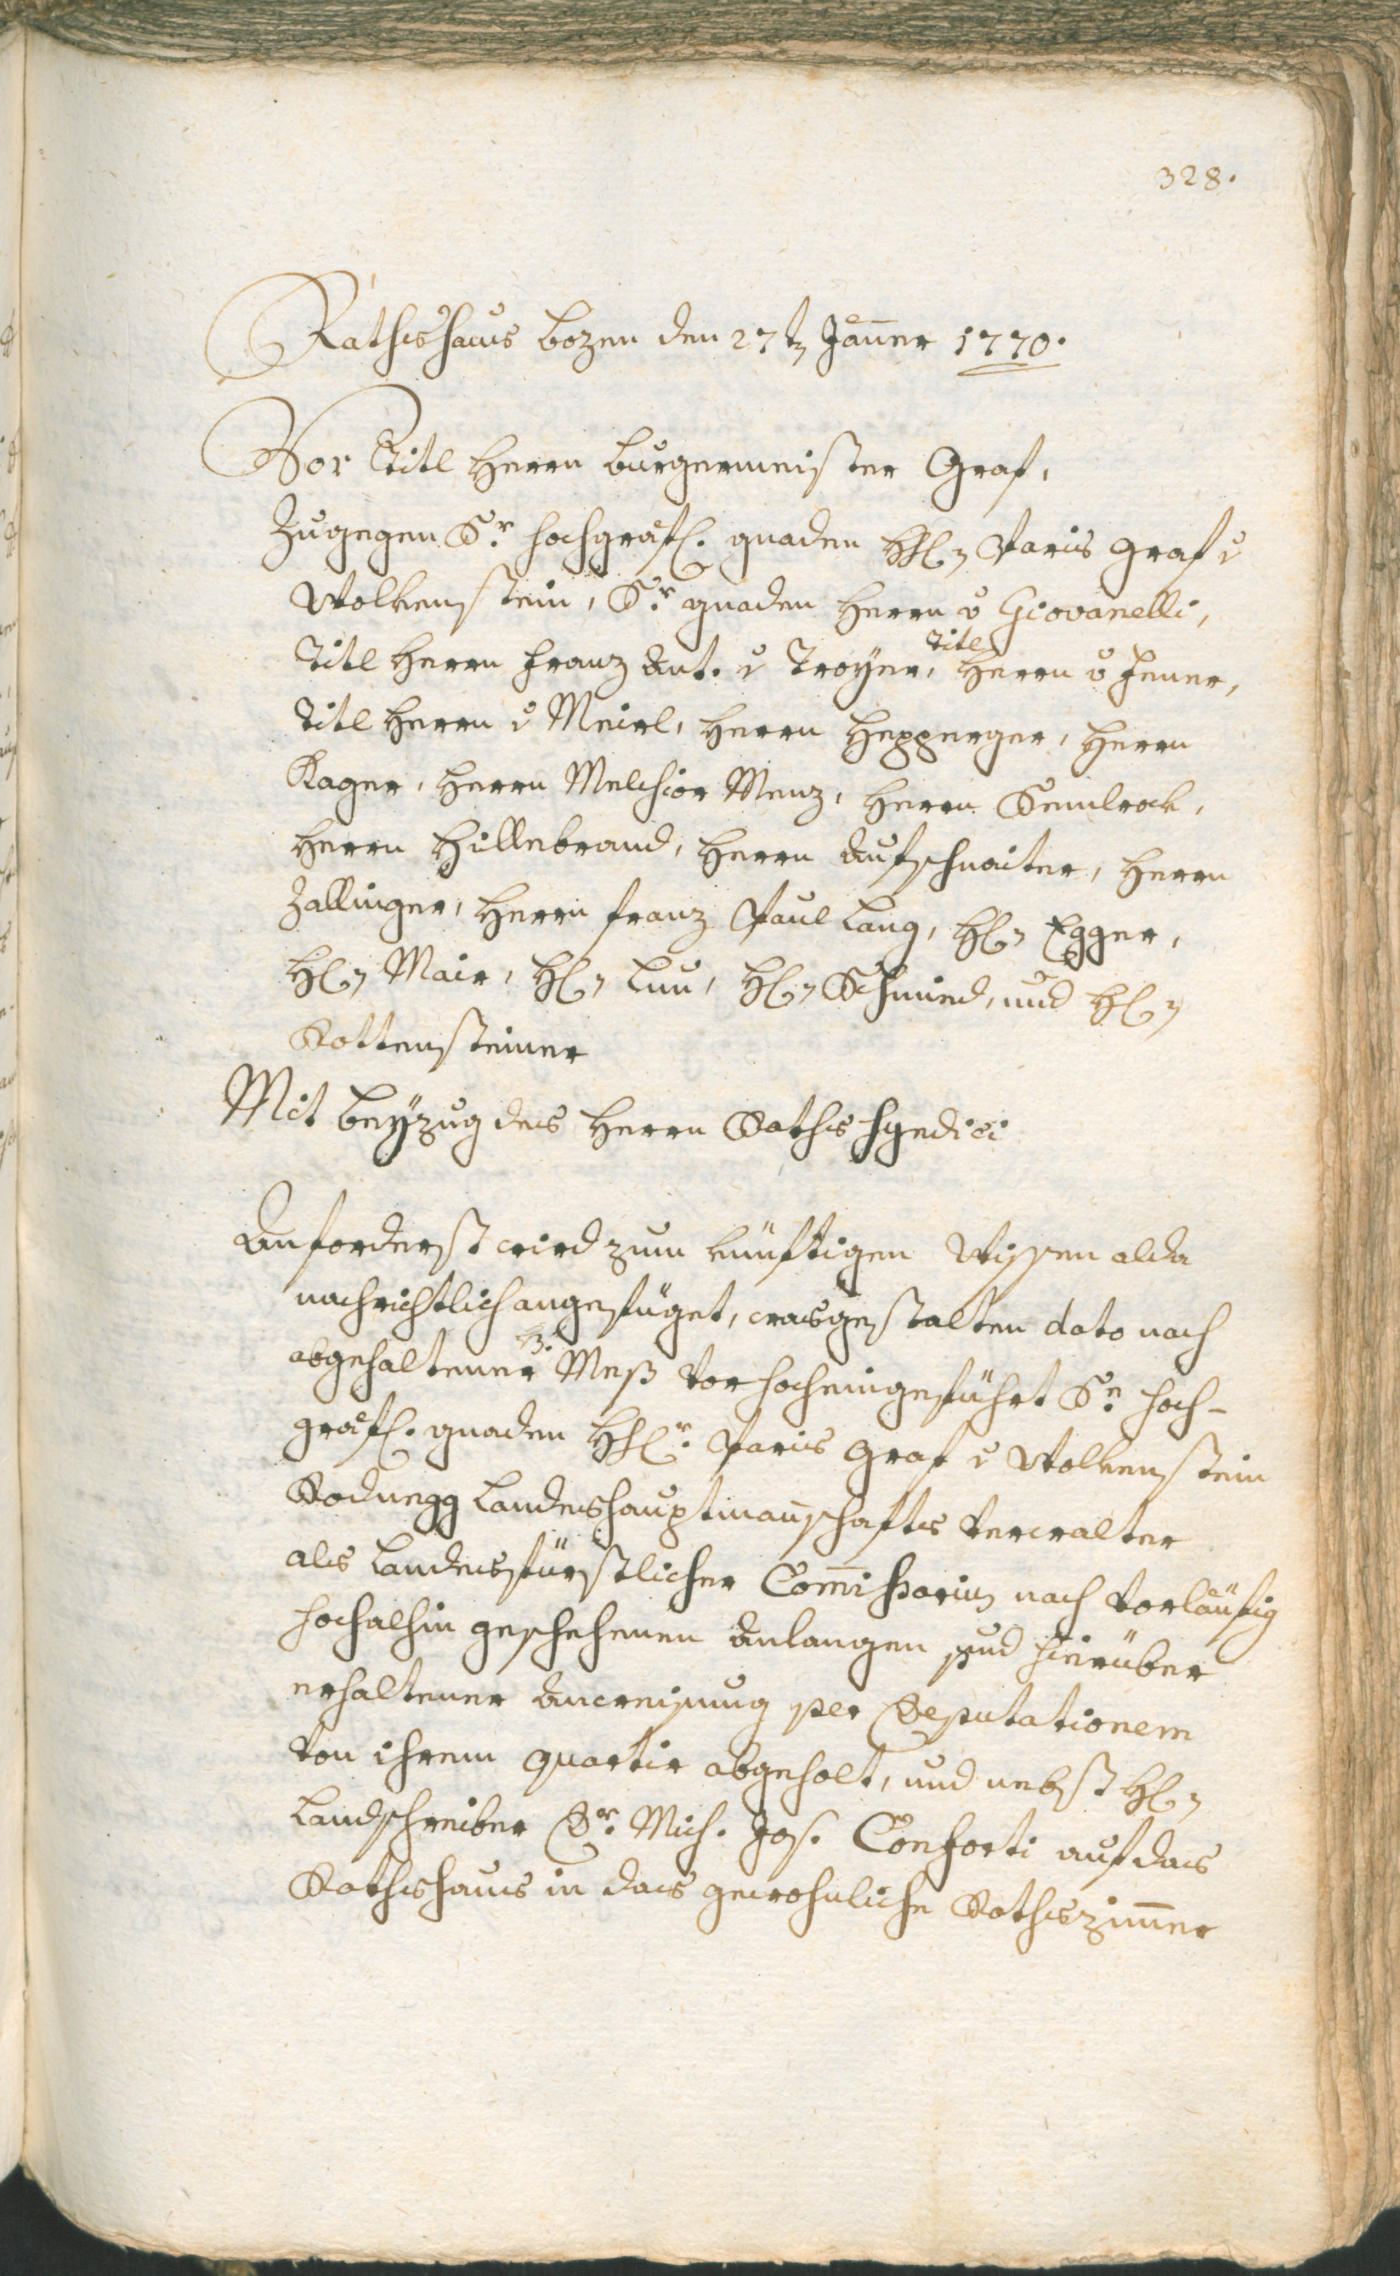 328.
Rathshaus Bozen den 27t Jäner 1770.
Vor Titl Herrn Burgermeister Graf,
Zugegen Sr. hochgräfl. gnaden H. Paris Graf v
Wolkenstein, Sr. gnaden Herrn v Giovanelli,
Titl
Titl Herrn Franz Ant. v Troÿer, Herrn v Jener,
Titl Herrn v Meirl, Herrn Hepperger, Herrn
Kager, Herrn Melchior Menz, Herrn Semlrock,
Herrn Hillebrand, Herrn Aufschnaiter, Herrn
Zallinger, Herrn Franz Paul Lang, H. Egger,
H. Mair, H. Luu, H. Schmid, und H.
Rottensteiner
Mit beÿzug des Herrn Raths Syndici
Anforderst wird zum künftigen Wissen alda
nachrichtlich angefüget, wasgestalten dato nach
abgehaltener Meß vorhocheingeführt Se. hoch-
gräfl. gnaden H. Paris Graf v Wolkenstein
Rodnegg Landeshauptmanschafts Verwalter
als Landesfürstlicher Commissarius nach vorläufig
hochalhin geschehenen Anlangen und hierüber
erhaltener Anweisung per Deputationem
von ihrem quartir abgeholt, und nebst H.
Landschreiber Dr. Mich. Jos. Conforti auf das
Rathshaus in das gewohnliche Rathszimer